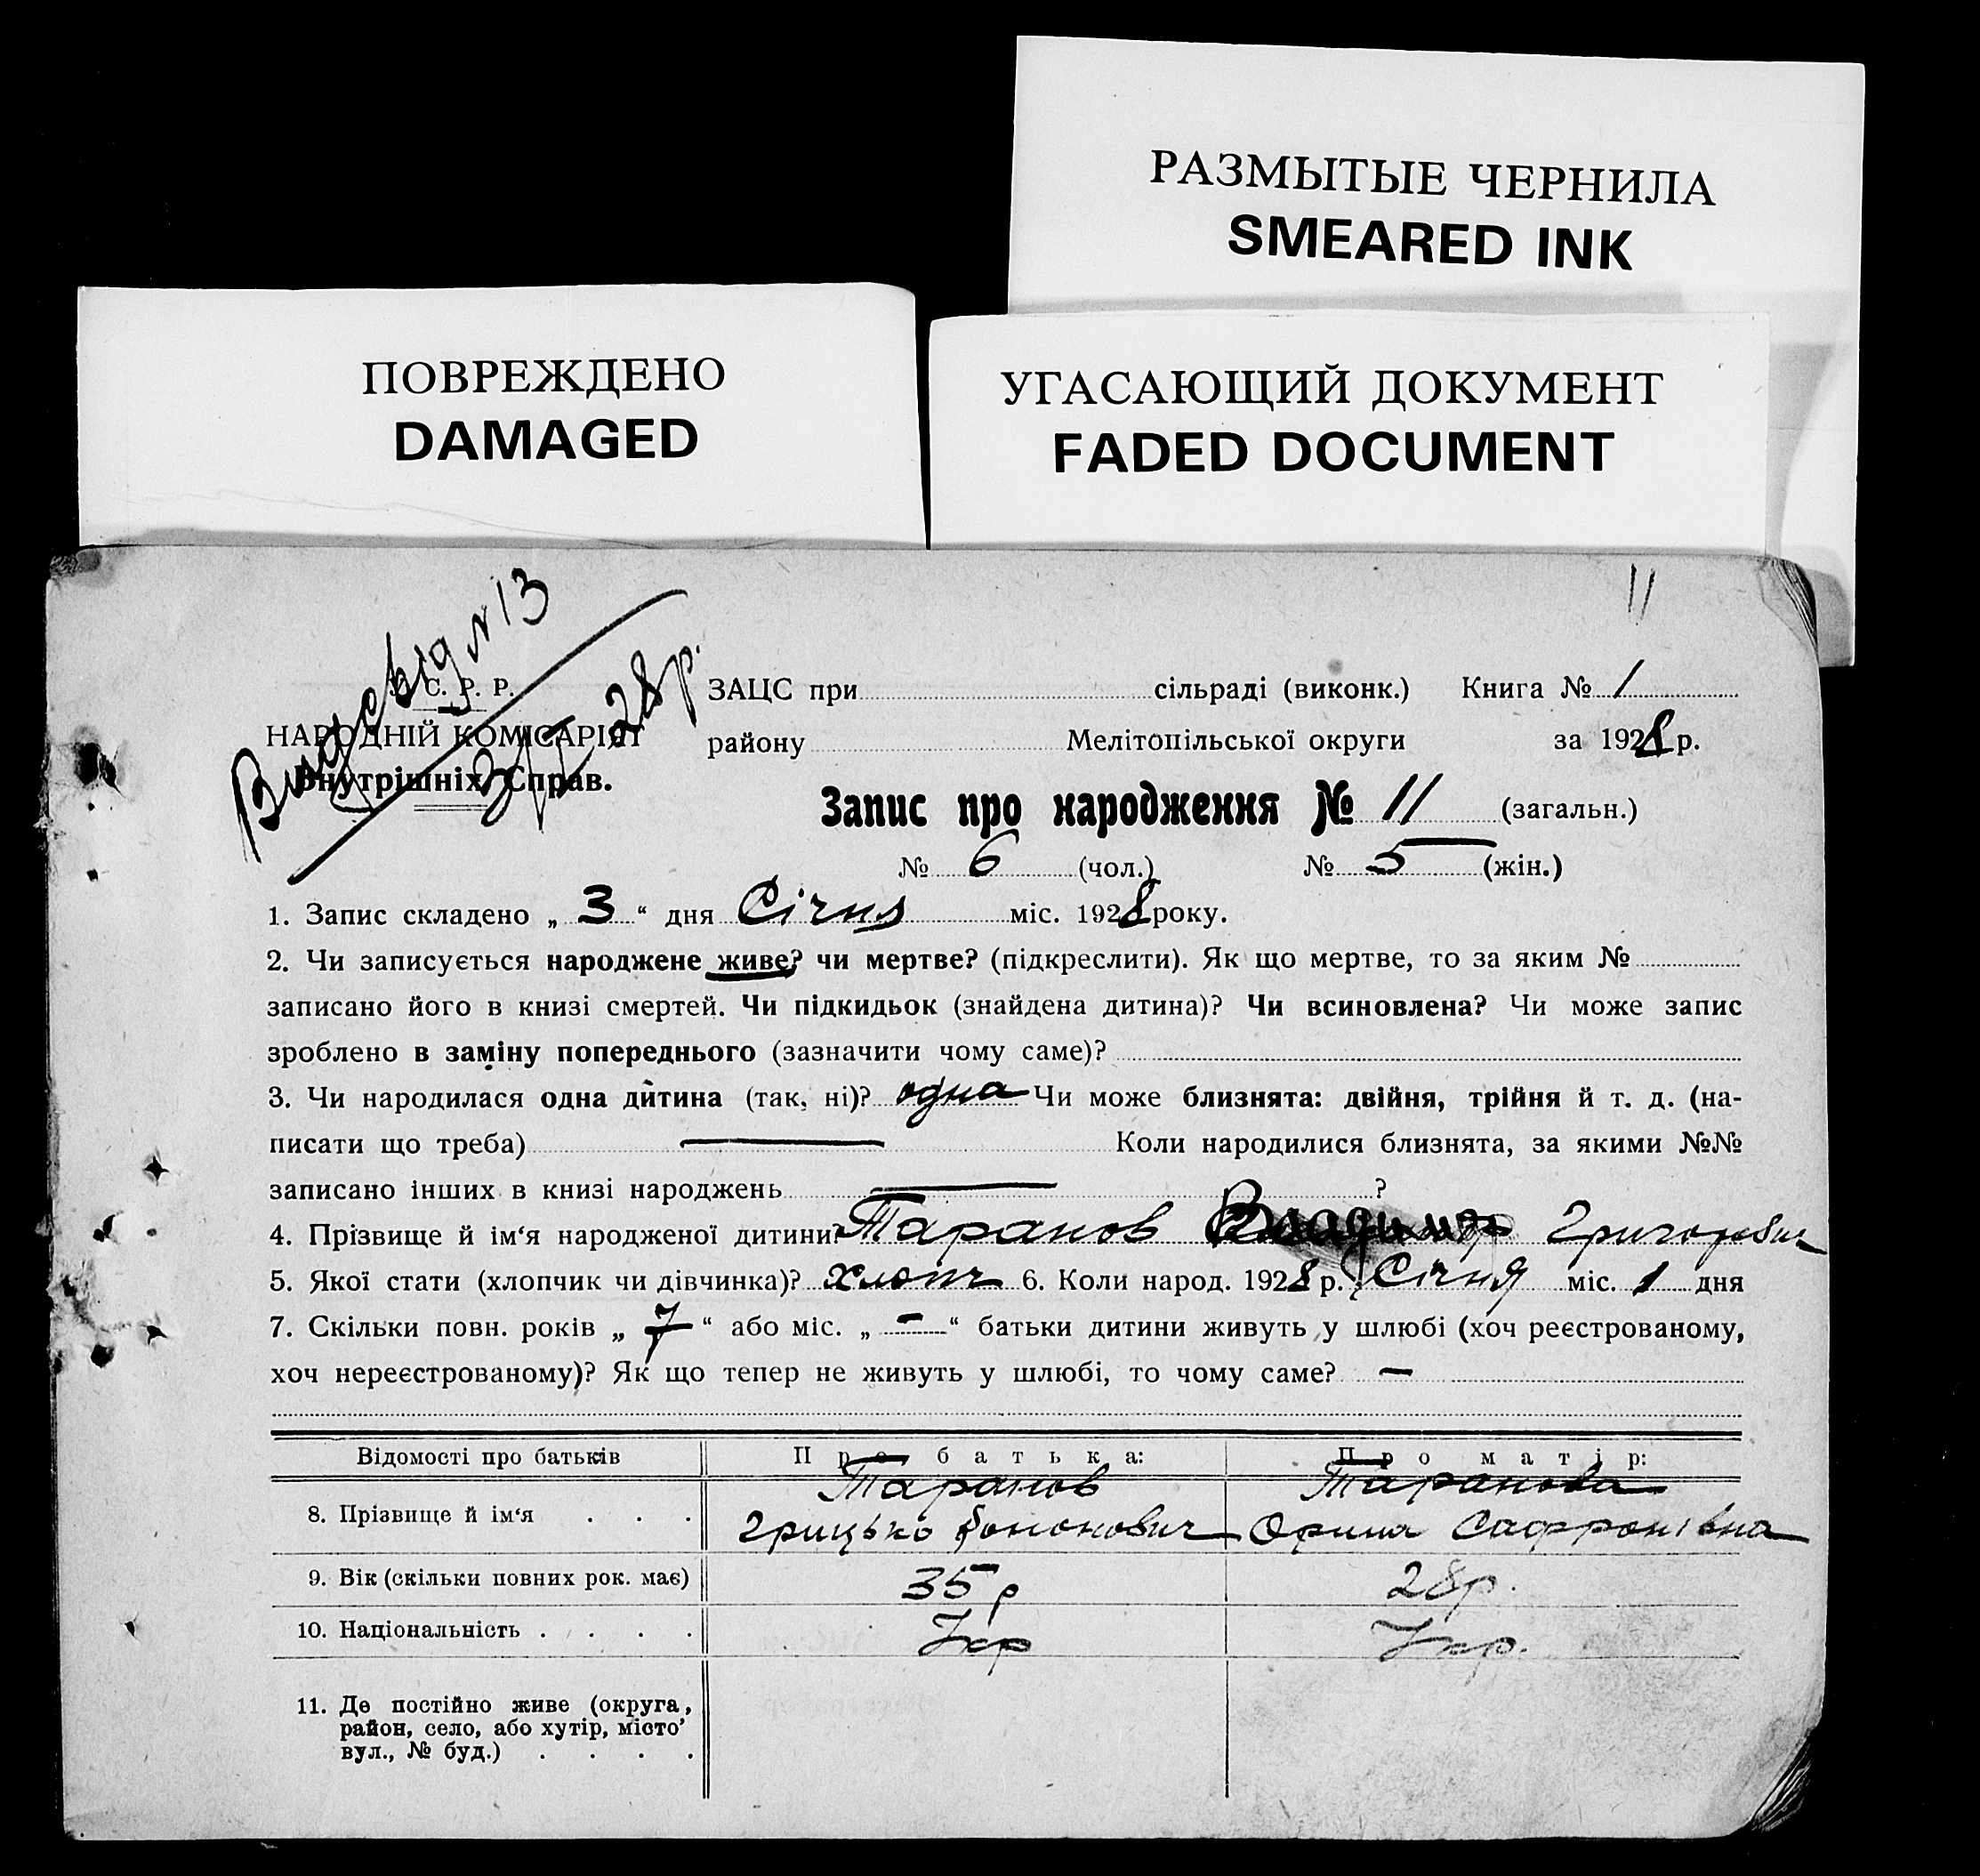 РАЗМЫТЫЕ ЧЕРНИЛА
SMEARED INK
ПОВРЕЖДЕНО
DAMAGED
УГАСАЮЩИЙ ДОКУМЕНТ
FADED DOCUMENT
11
N 13
3/I 28 р.
У. С. Р. Р.
НАРОДНІЙ КОМІСАРІЯТ
Внутрішніх Справ.
ЗАЦС при сільраді (виконк.) Книга № 1
району Мелітопільської округи за 1928 р.
Запис про народження № 11 (загальн.)
№ 6 (чол.) № 5 (жін.)
1. Запис складено „ 3 “ дня Січня міс. 1928 року.
2. Чи записується народжене живе? чи мертве? (підкреслити). Як що мертве, то за яким №
записано його в книзі смертей. Чи підкидьок (знайдена дитина)? Чи всиновлена? Чи може запис
зроблено в заміну попереднього (зазначити чому саме)?
3. Чи народилася одна дитина (так, ні)? одна Чи може близнята: двійня, трійня й т. д. (на-
писати що треба) — Коли народилися близнята, за якими №№
записано інших в книзі народжень — ?
4. Прізвище й ім‘я народженої дитини? Таранов Владимир Григоревич
5. Якої стати (хлопчик чи дівчинка)? хлопч 6. Коли народ. 1928 р. Січня міс. 1 дня
7. Скільки повн. років „ 7 “ або міс. „ - “ батьки дитини живуть у шлюбі (хоч реєстрованому,
хоч нереєстрованому)? Як що тепер не живуть у шлюбі, то чому саме? —
Відомості про батьків Про батька: Про матір:
8. Прізвище й ім‘я . . . Таранов Грицько Таранова Орина Сафронівна
9. Вік (скільки повних рок. має) 35 р 28 р.
10. Національність . . . . Укр Укр.
11. Де постійно живе (округа,
район, село, або хутір, місто’
вул., № буд.) . . . .